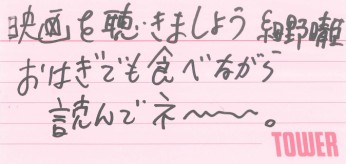 映画を聴きましょう 細野晴臣
おはぎでも食べながら
読んでネ〜〜。
TOWER